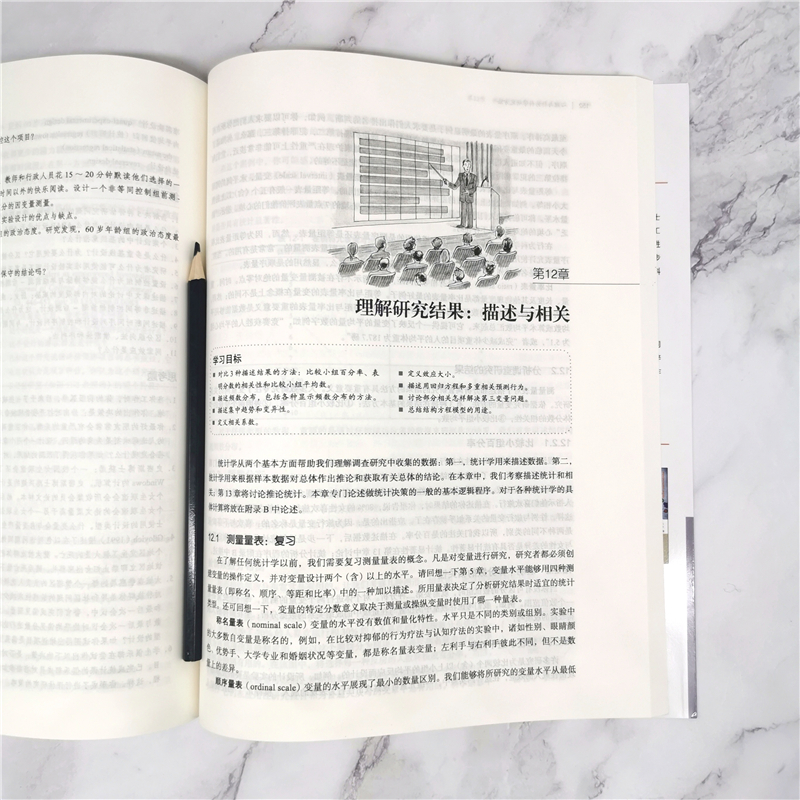 的这个项目?
教师和行政人员花 15～20 分钟默读他们选择的一
时间以外的快乐阅读。设计一个非等同控制组前测-
分的因变量测量。
实验设计的优点与缺点。
的政治态度。研究发现，60 岁年龄组的政治态度最
保守的结论吗?
第12章
理解研究结果：描述与相关
学习目标
■ 对比 3 种描述结果的方法：比较小组百分率、表
明分数的相关性和比较小组平均数。
■ 描述频数分布，包括各种显示频数分布的方法。
■ 描述集中趋势和变异性。
■ 定义相关系数。
■ 定义效应大小。
■ 描述用回归方程和多重相关预测行为。
■ 讨论部分相关怎样解决第三变量问题。
■ 总结结构方程模型的用途。
统计学从两个基本方面帮助我们理解调查研究中收集的数据：第一，统计学用来描述数据。第二，
统计学用来根据样本数据对总体作出推论和获取有关总体的结论。在本章中，我们考察描述统计和相
关；第 13 章将讨论推论统计。本章专门论述做统计决策的一般的基本逻辑程序。对于各种统计学的具
体计算将放在附录 B 中论述。
12.1 测量量表：复习
在了解任何统计学以前，我们需要复习测量量表的概念。凡是对变量进行研究，研究者都必须创
建变量的操作定义，并对变量设计两个（含）以上的水平。请回想一下第 5 章，变量水平能够用四种测
量量表（即称名、顺序、等距和比率）中的一种加以描述。所用量表决定了分析研究结果时适宜的统计
类型。还可回想一下，变量的特定分数意义取决于测量或操纵变量时使用了哪一种量表。
称名量表（nominal scale）变量的水平没有数值和量化特性。水平只是不同的类别或组别。实验中
的大多数自变量是称名的，例如，在比较对抑郁的行为疗法与认知疗法的实验中，诸如性别、眼睛颜
色、优势手、大学专业和婚姻状况等变量，都是称名量表变量；左利手与右利手彼此不同，但不是数
量上的差异。
顺序量表（ordinal scale）变量的水平展现了最小的数量区别。我们能够将所研究的变量水平从最低